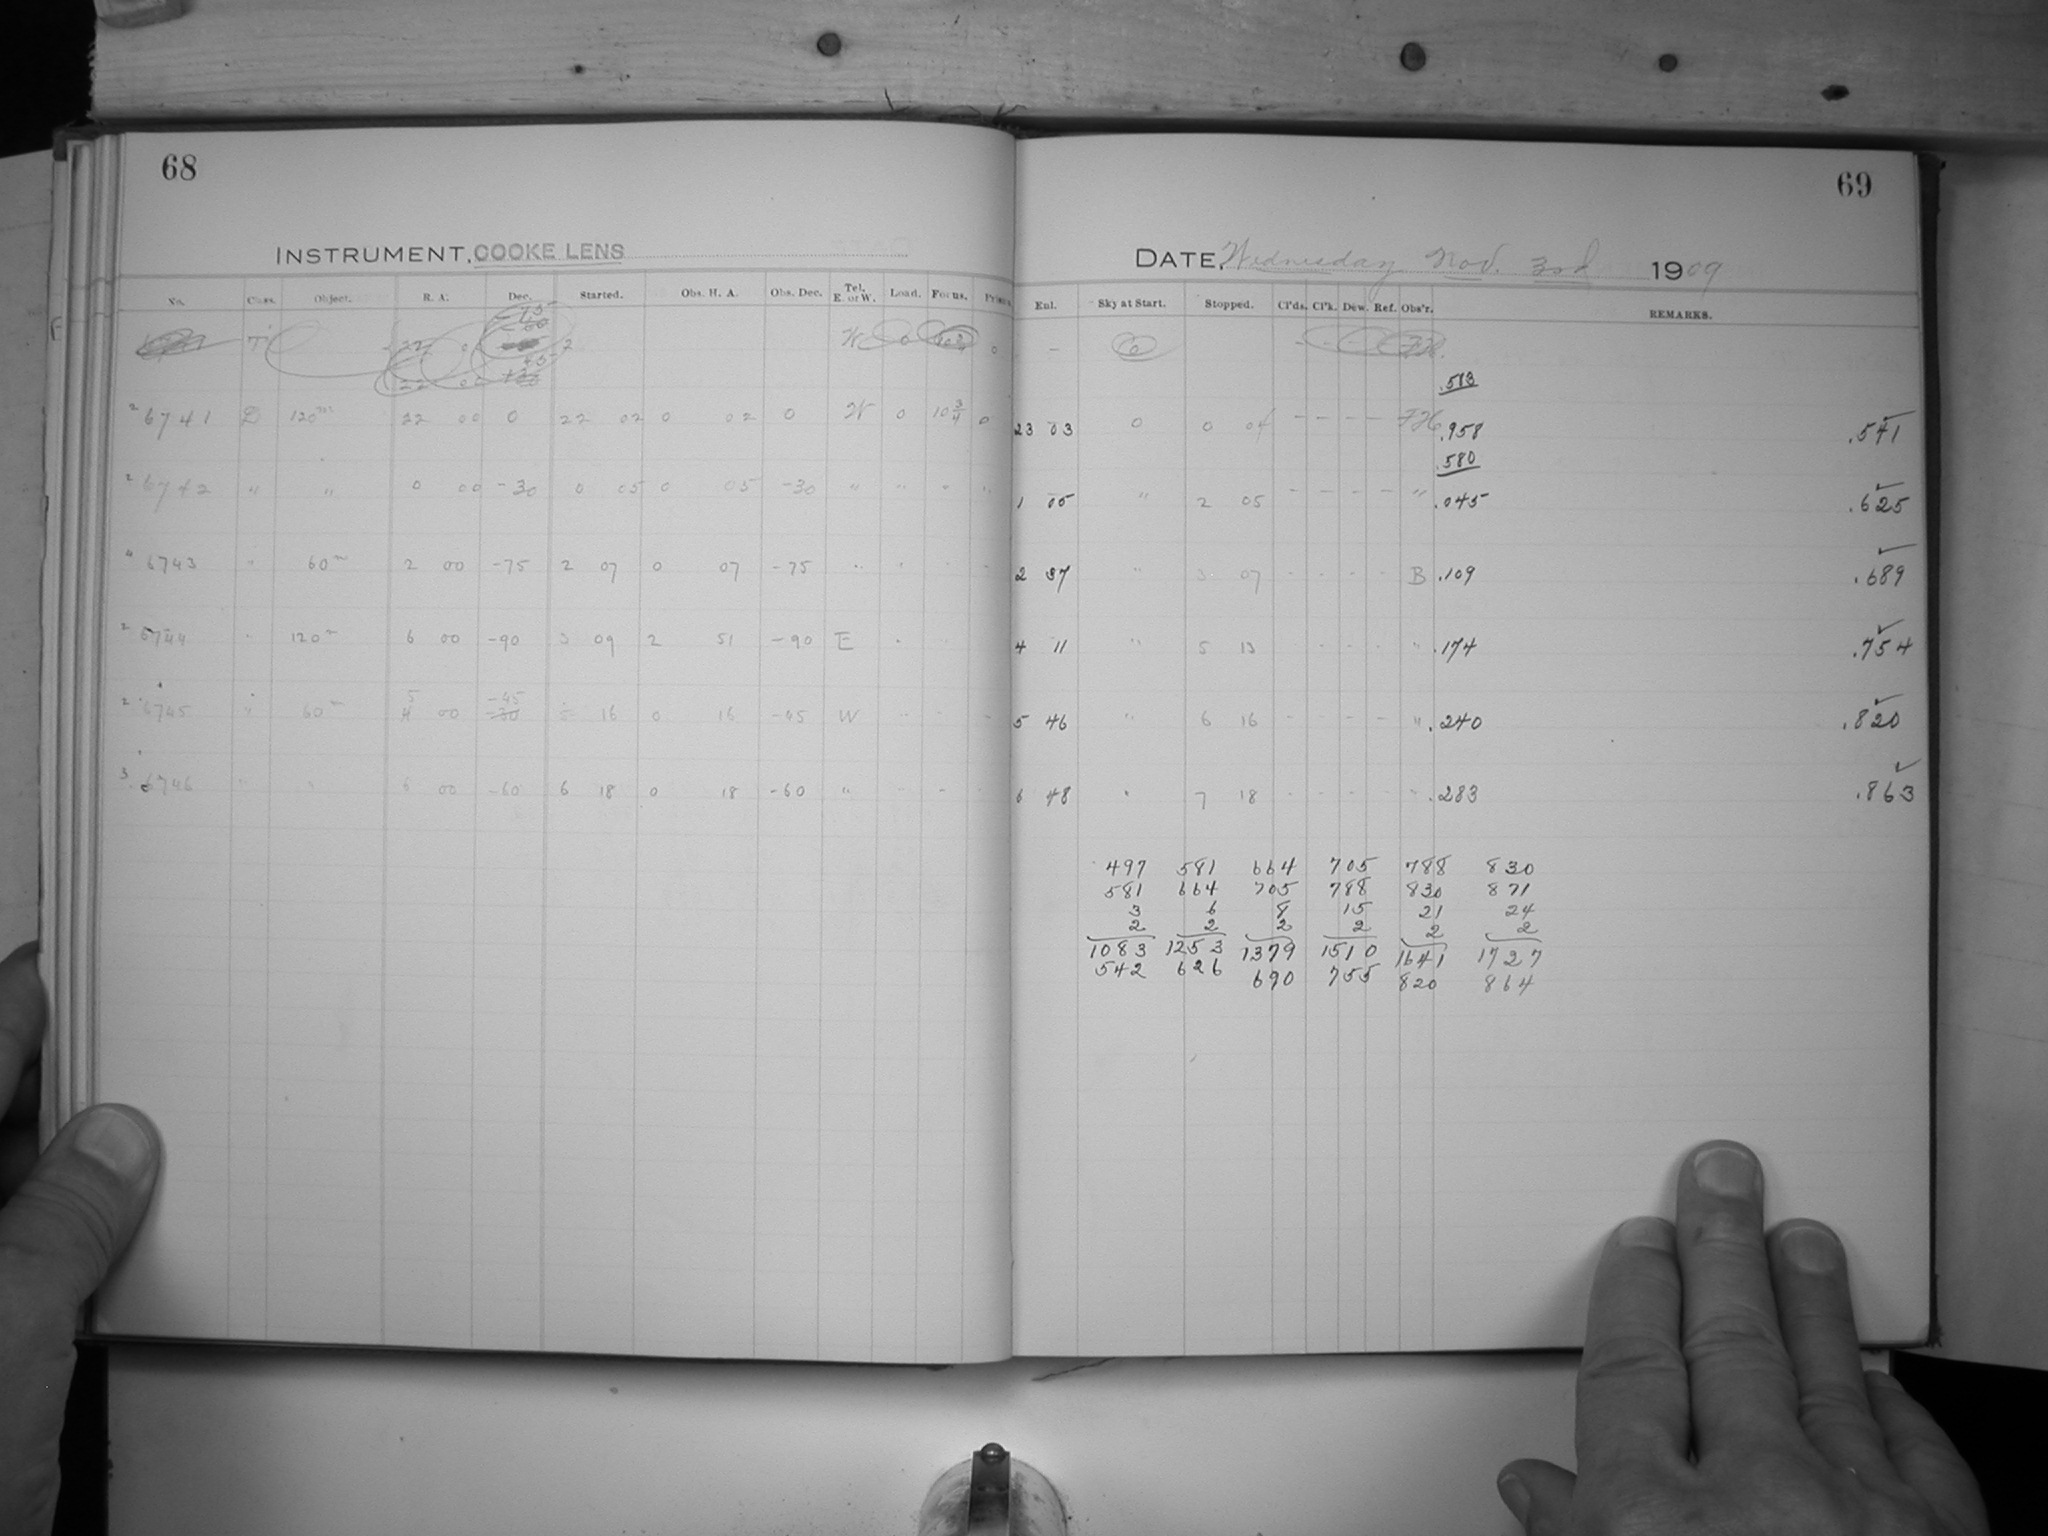 68
INSTRUMENT, COOKE LENS
No. Class. Object. R. A. Dec. Started. Obs. H. A. Obs. Dec. Tel. E. or W. Load. Focus.
2 6741 D 120m 22 00 0 22 02 0 02 0 W 0 10 3/4 0
2 6742 " " 0 00 -30 0 05 0 05 -30 " " " "
6743 " 60m 2 00 -75 2 07 0 07 -75 " "
2 6744 " 120m 6 00 -90 3 09 2 51 -90 E
2 6745 " 60m 5 00 -45 16 0 16 -45 W
3 6746 " " 6 00 -60 6 18 0 18 -60 "
69
DATE, Wednesday Nov. 3rd 1909
Enl. Sky at Start. Stopped. Cl'ds. Cl'k. Dew. Ref. Obs'r. REMARKS.
.583
23 03 0 0 04 - - - - .958 .541
.580
1 05 " 2 05 - - - - " .045 .625
2 37 " 3 07 - - - - B .109 .689
4 11 " 5 13 - - - - " .174 .754
5 46 " 6 16 - - - - " .240 .820
6 48 " 7 18 - - - - " .283 .863
497 581 664 705 788 830
581 664 705 788 830 871
3 6 8 15 21 24
2 2 2 2 2 2
1083 1253 1379 1510 1641 1727
542 626 690 755 820 864